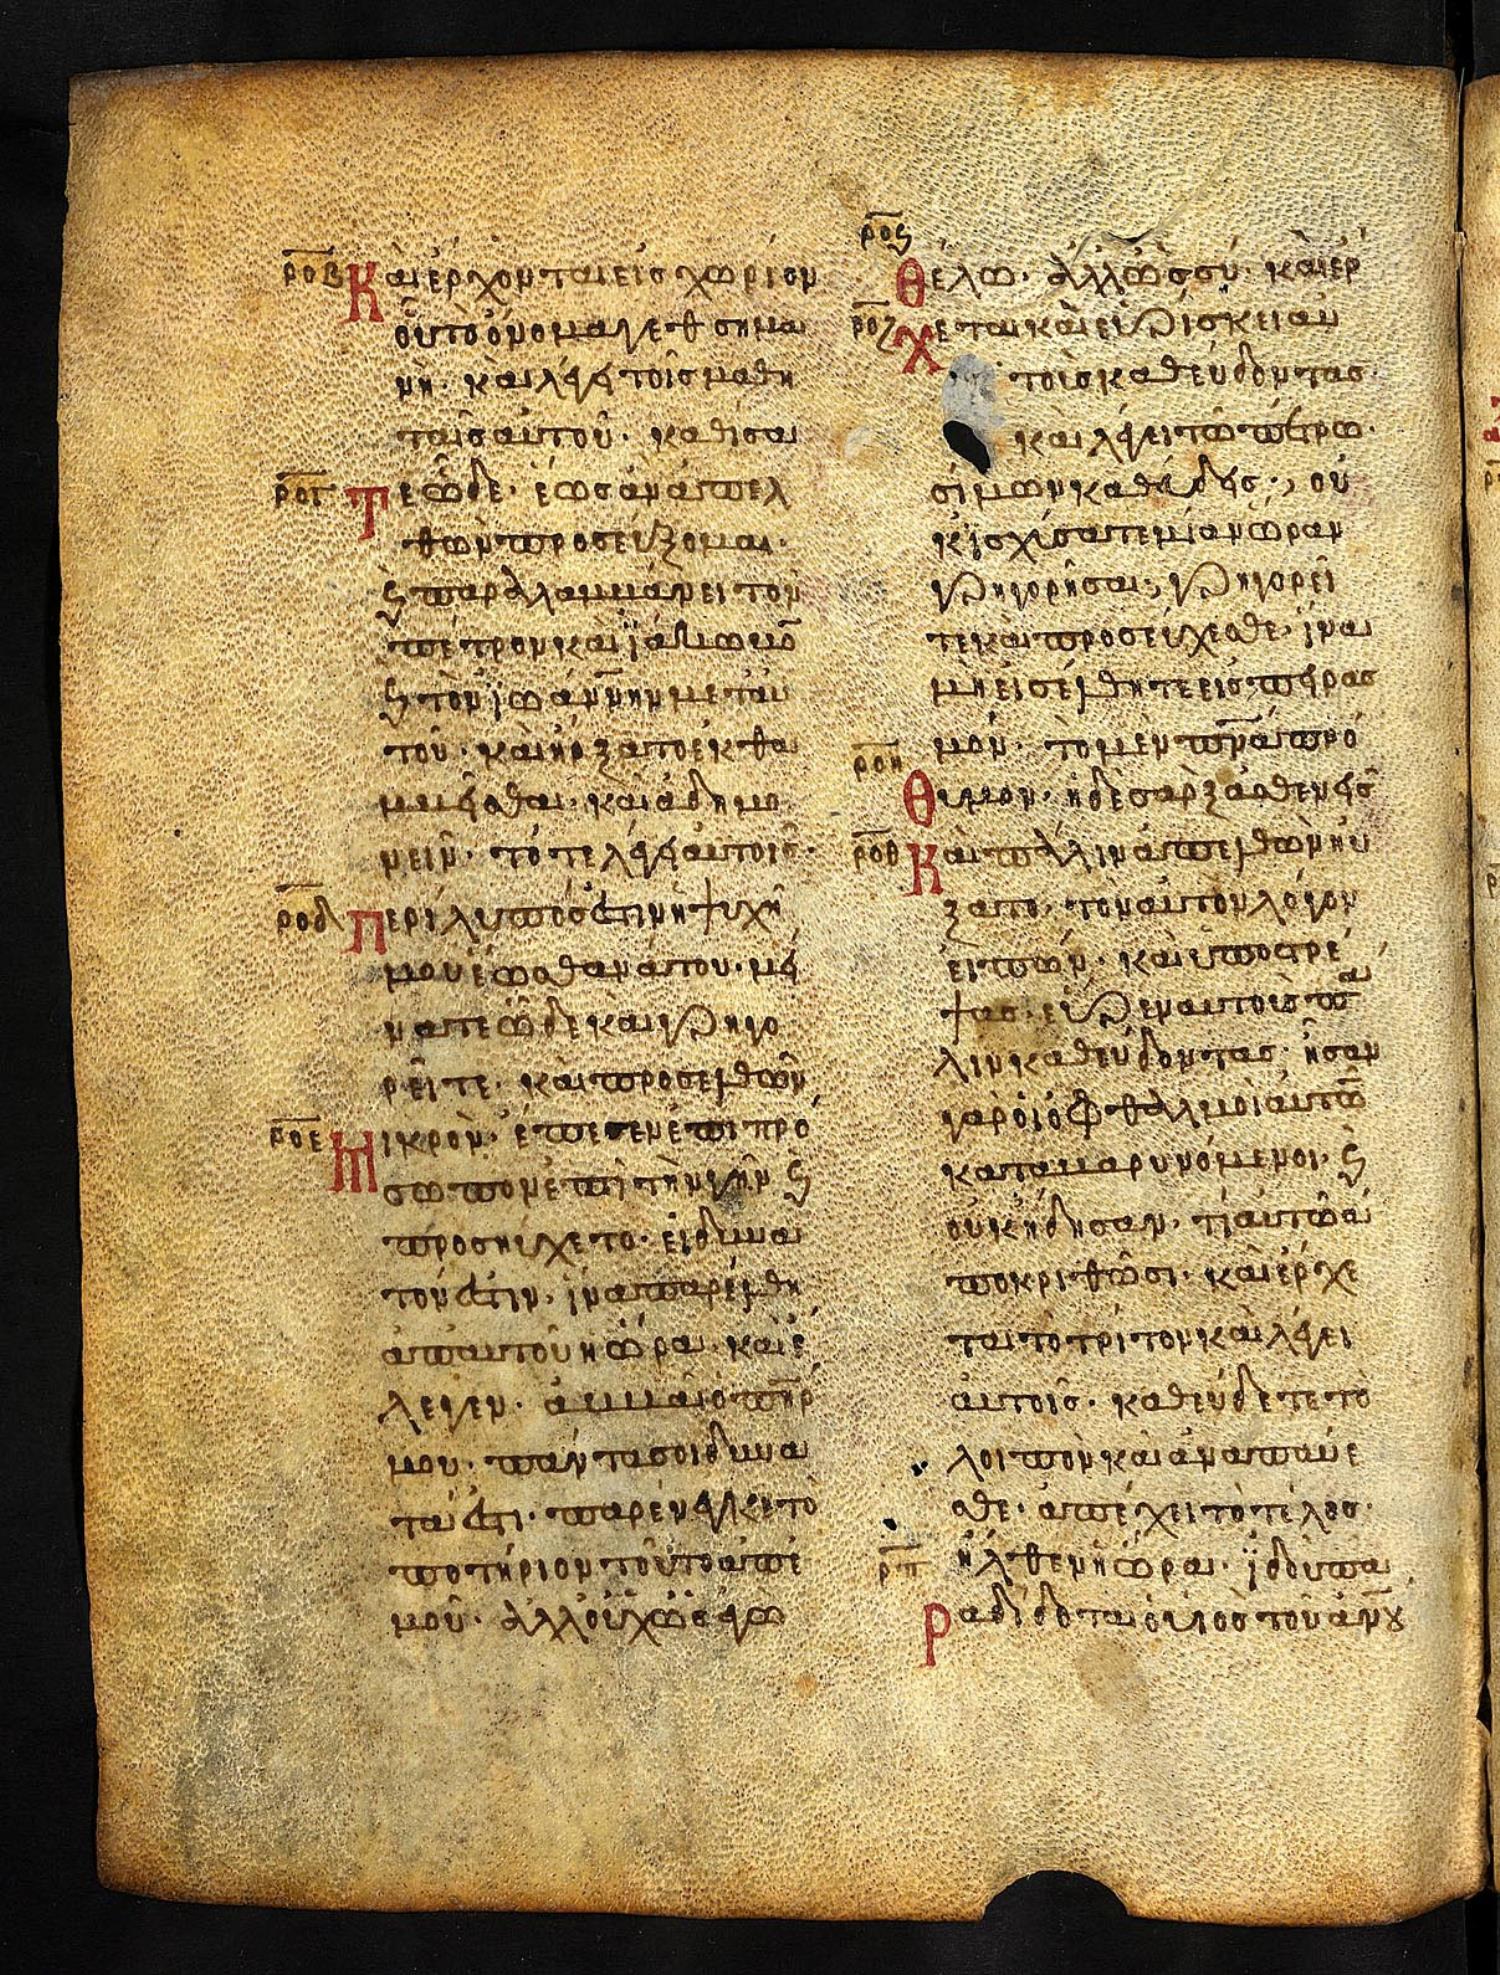 ροβ Καὶ ἔρχονται εἰς χωρίον
οὗ τὸ ὄνομα γεθσημα
νή· καὶ λέγει τοῖς μαθη
ταῖς αὐτοῦ· καθίσα
ρογ Τε ὧδε· ἕως ἂν ἀπελ
θὼν προσεύξομαι·
ϛ παραλαμβάνει τὸν
πέτρον καὶ ἰάκωβο̅
ϛ τὸν ἰωάννην μετ αὐ
τοῦ· καὶ ἤρξατο ἐκθα
μβεῖσθαι· καὶ ἀδημο
νεῖν· τότε λέγει αὐτοῖς·
ροδ Περίλυπός ἐστιν ἡ ψυχή
μου ἕως θανάτου· μεί
νατε ὧδε καὶ γρηγο
ρεῖτε· καὶ προσελθὼν
ροε Μικρὸν· ἔπεσεν ἐπι πρό
σωπον ἐπὶ τὴν γῆν ϛ
προσηύχετο· εἰ δυνα
τόν ἐστιν· ἵνα παρέλθη
ἀπ αὐτοῦ ἡ ὥρα· καὶ ἔ
λεγεν· ἀββᾶ ὁ π̅η̅ρ
μου· πάντα σοι δυνα
τά ἐστι· παρένεγκε τὸ
ποτήριον τοῦτο ἀπ ἐ
μοῦ· ἀλλ οὐχ ὡς ἐγω
ροϛ
Θέλω· ἀλλ ὡς σύ· καὶ ἔρ
ροζ Χεται καὶ εὑρίσκει αὐ
τοὺς καθεύδοντας·
καὶ λέγει τῶ πέτρω·
σίμων καθεύδεις; οὐ
κ ἰσχύσατε μίαν ὥραν
γρηγορῆσαι; γρηγορεῖ
τε καὶ προσεύχεσθε· ἵνα
μὴ εἰσέλθητε εἰς πειρας
μόν· τὸ μὲν π̅ν̅α πρό
ροη Θυμον· ἡ δὲ σὰρξ ἀσθενείς
ροθ Καὶ πάλιν ἀπελθὼν ηὔ
ξατο· τὸν αὐτὸν λόγον
εἰπών· καὶ ὑποστρέ
ψας· εὗρεν αὐτοὺς πα
λιν καθεύδοντας· ἦσαν
γὰρ οἱ ὀφθαλμοὶ αὐτῶ
καταβαρυνόμενοι· ϛ
οὐκ ἤδησαν· τί αὐτῶ ἀ
ποκριθῶσι· καὶ ἔρχε
ται τὸ τρίτον καὶ λέγει
αὐτοῖς· καθεύδετε τὸ
λοιπὸν καὶ ἀναπαύε
σθε· ἀπέχει τὸ τέλος·
ρπ ἦλθεν ἡ ὥρα· ἰδοὺ πα
Ραδίδοται ὁ υἱὸς τοῦ α̅ν̅ου